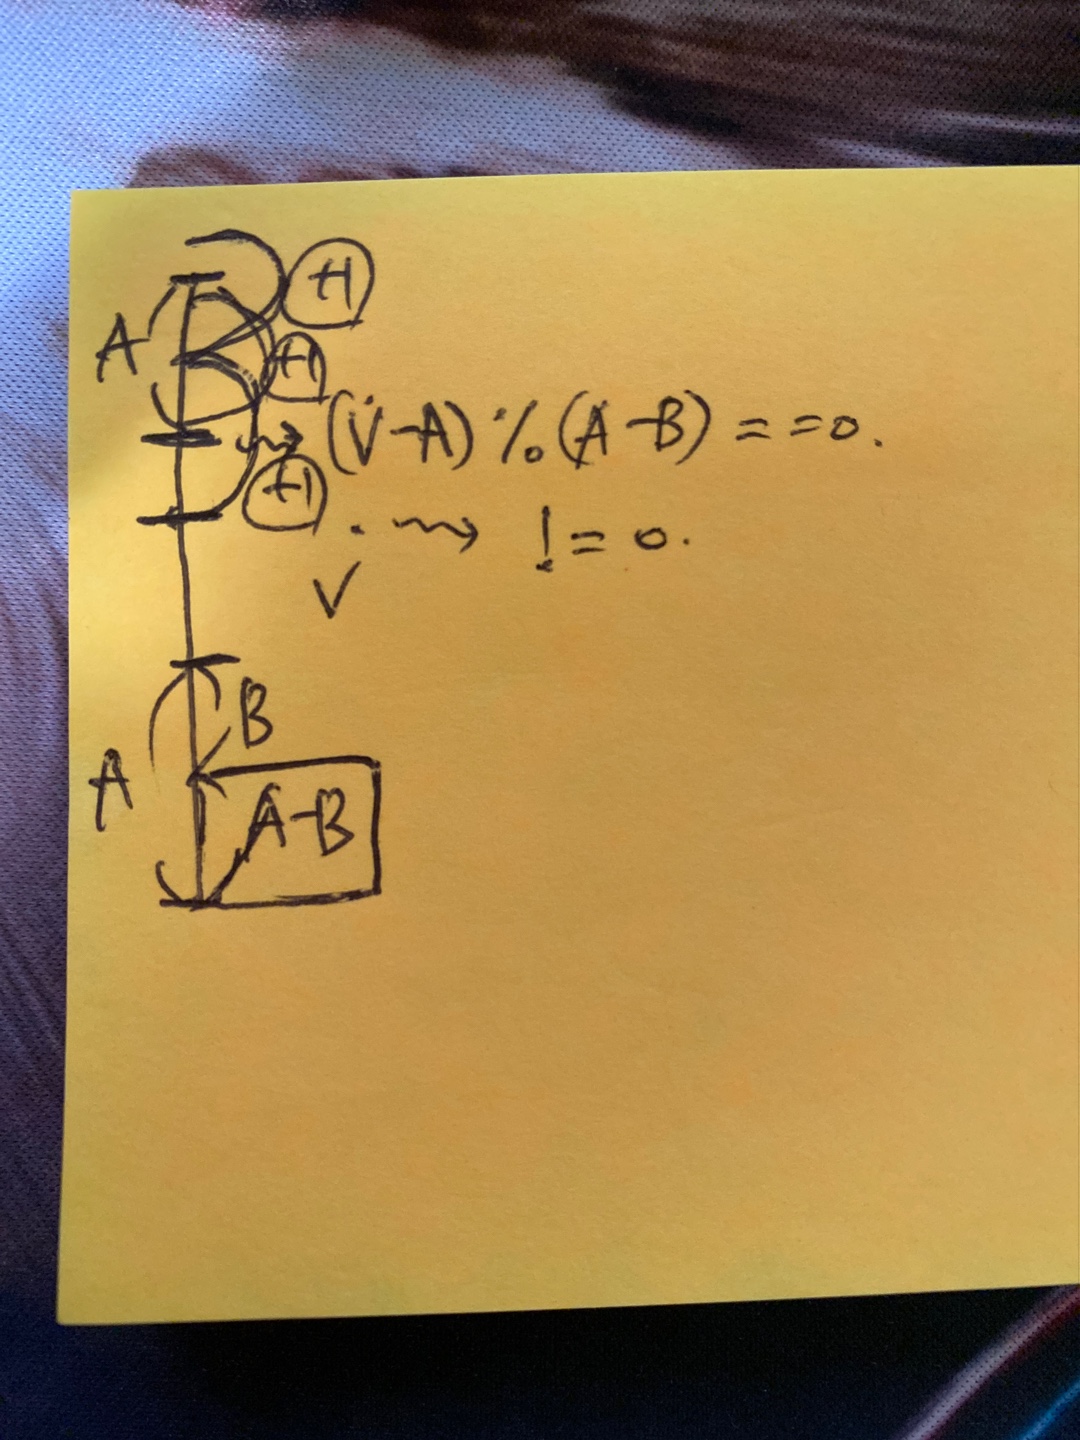 +1
A
+1
(V-A) % (A-B) = = 0.
+1
! = 0.
V
B
A
A-B